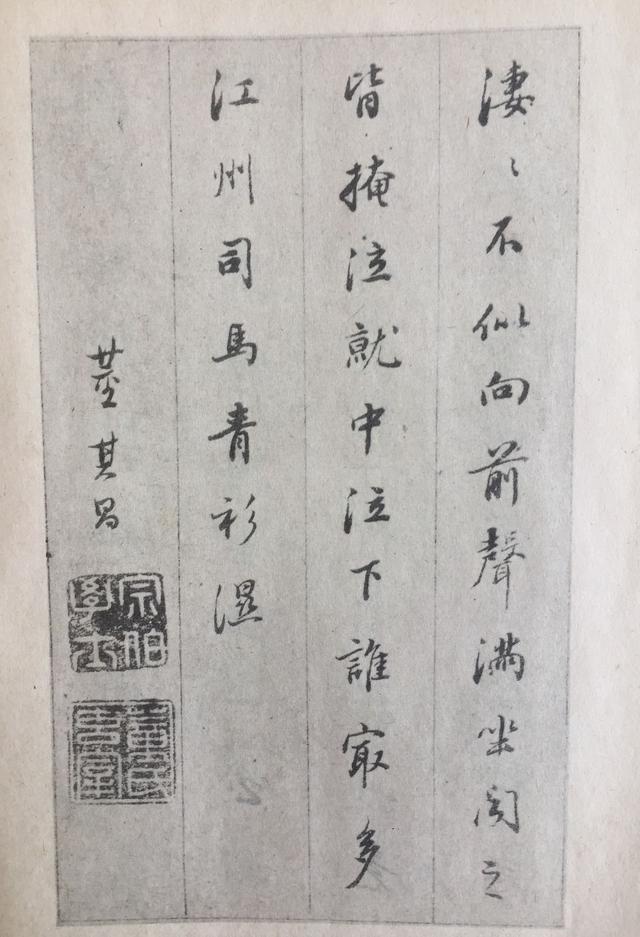 淒〻不似向前聲滿坐闻之
皆掩泣就中泣下誰㝡多
江州司馬青衫濕
董其昌
宗伯學士